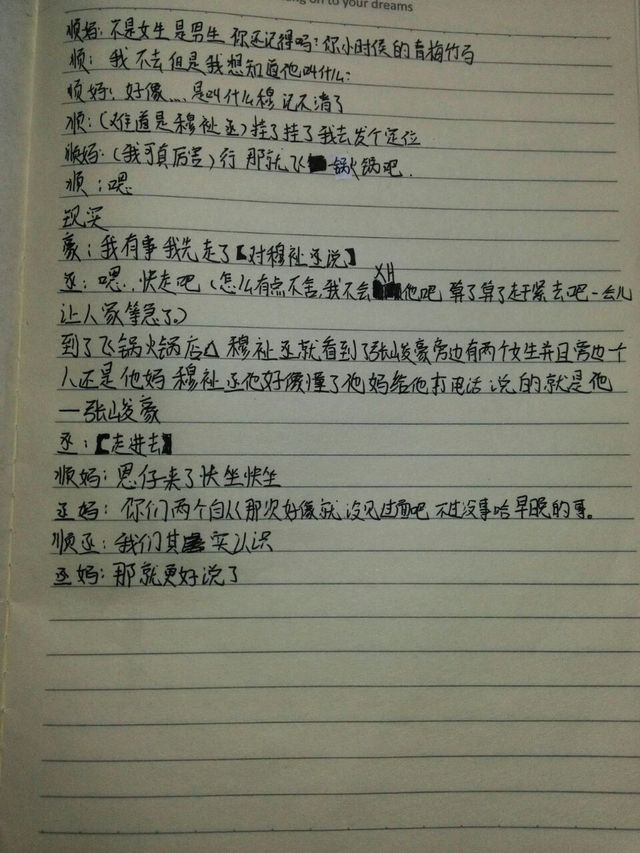 ng on to your dreams
顺妈：不是女生是男生 你还记得吗？你小时候的青梅竹马
顺：我不去但是我想知道他叫什么：
顺妈：好像.... 是叫什么穆 记不清了
顺：（难道是穆祉丞）挂了挂了我去发个定位
顺妈：（我可真厉害）行 那就飞锅火锅吧.
顺：嗯
现实
豪：我有事我先走了【对穆祉丞说】
丞：嗯，快走吧（怎么有点不舍，我不会XH他吧 算了算了赶紧去吧一会儿
让人家等急了。）
到了飞锅火锅店△ 穆祉丞就看到了张峻豪旁边有两个女生并且旁边一个
人还是他妈 穆祉丞他好像懂了他妈给他打电话 说的就是他
—张峻豪
丞：【走进去】
顺妈：恩仔来了快坐快坐
丞妈：你们两个自从那次好像就没见过面吧 不过没事哈早晚的事。
顺丞：我们其实认识
丞妈：那就更好说了